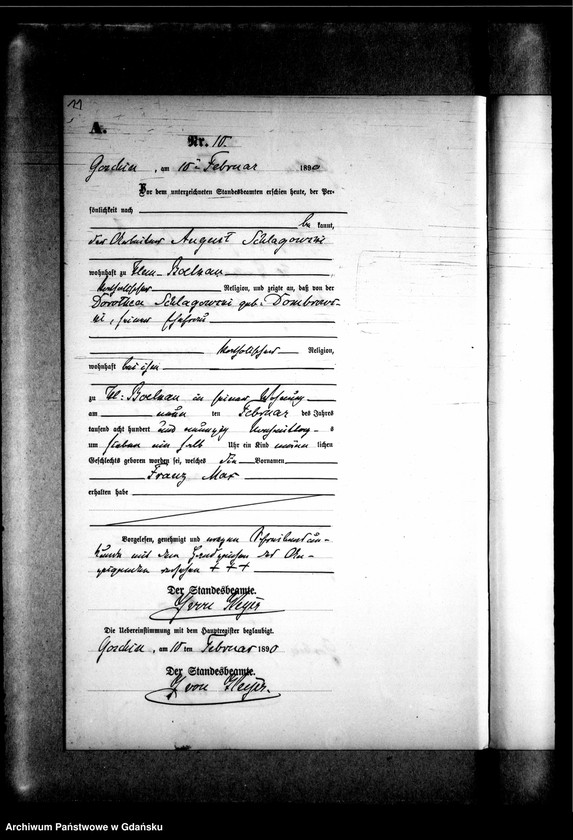 A.
Nr. 10.
am 10ten Februar 1890
Vor dem unterzeichneten Standesbeamten erschien heute, der Per-
sönlichkeit nach
be kannt,
der Arbeiter August Schlagowski
wohnhaft zu Klein-Boelkau
katholischer Religion, und zeigte an, daß von der
Dorothea Schlagowski geb. Dombrows-
ki, seiner Ehefrau
katholischer Religion,
wohnhaft bei ihm
zu Kl: Boelkau in seiner Wohnung
am neun ten Februar des Jahres
tausend acht hundert und neunzig Nachmittag s
um sieben ein halb Uhr ein Kind männ lichen
Geschlechts geboren worden sei, welches die Vornamen
Franz Max
erhalten habe
Vorgelesen, genehmigt und wegen Schreibensun-
kunde mit dem Handzeichen des An-
zeigenden versehen + + +
Der Standesbeamte.
Die Uebereinstimmung mit dem Hauptregister beglaubigt.
am 10 ten Februar 1890
Der Standesbeamte.
Archiwum Państwowe w Gdańsku